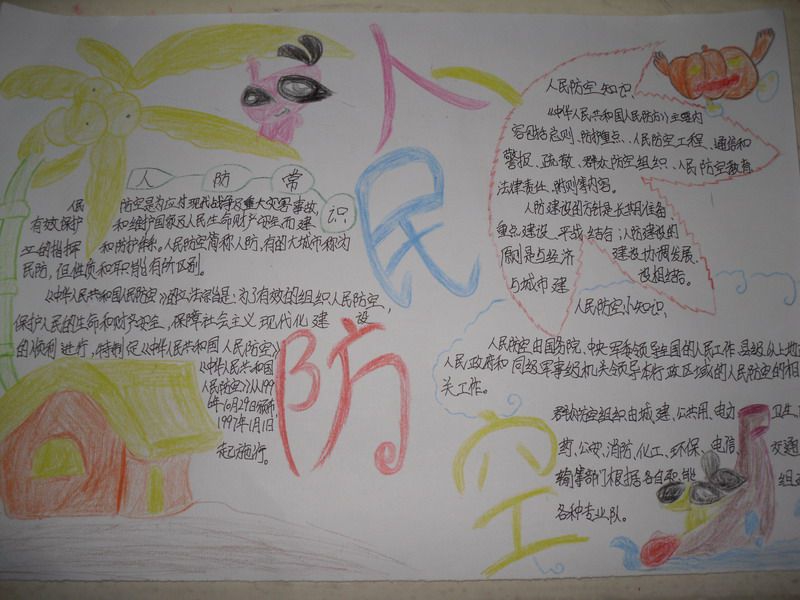 人民防空
人防常识
人民防空是为应付现代战争及重大灾害事故,
有效保护和维护国家及人民生命财产安全而建
立的指挥和防护体系。人民防空简称人防,有的大城市称为
民防,但性质和职能有所区别。
《中华人民共和国人民防空》的立法宗旨是:为了有效的组织人民防空,
保护人民的生命和财产安全,保障社会主义现代化建设
的顺利进行,特制定《中华人民共和国人民防空》
《中华人民共和国
人民防空》从199
6年10月29日颁布,
1997年1月1日
起施行。
人民防空知识
《中华人民共和国人民防空》主要内
容包括总则、防护重点、人民防空工程、通信和
警报、疏散、群众防空组织、人民防空教育
法律责任、附则等内容。
人防建设的方针是长期准备
重点建设、平战结合;人防建设的
原则是与经济建设协调发展、
与城市建设相结合。
人民防空小知识
人民防空由国务院、中央军委领导全国的人民工作,县级以上地
人民政府和同级军事级机关领导本行政区域的人民防空的相
关工作。
群众防空组织由城建、公共用、电力、卫生、
药、公安、消防、化工、环保、电信、交通
输等部门根据各自职能组
各种专业队。